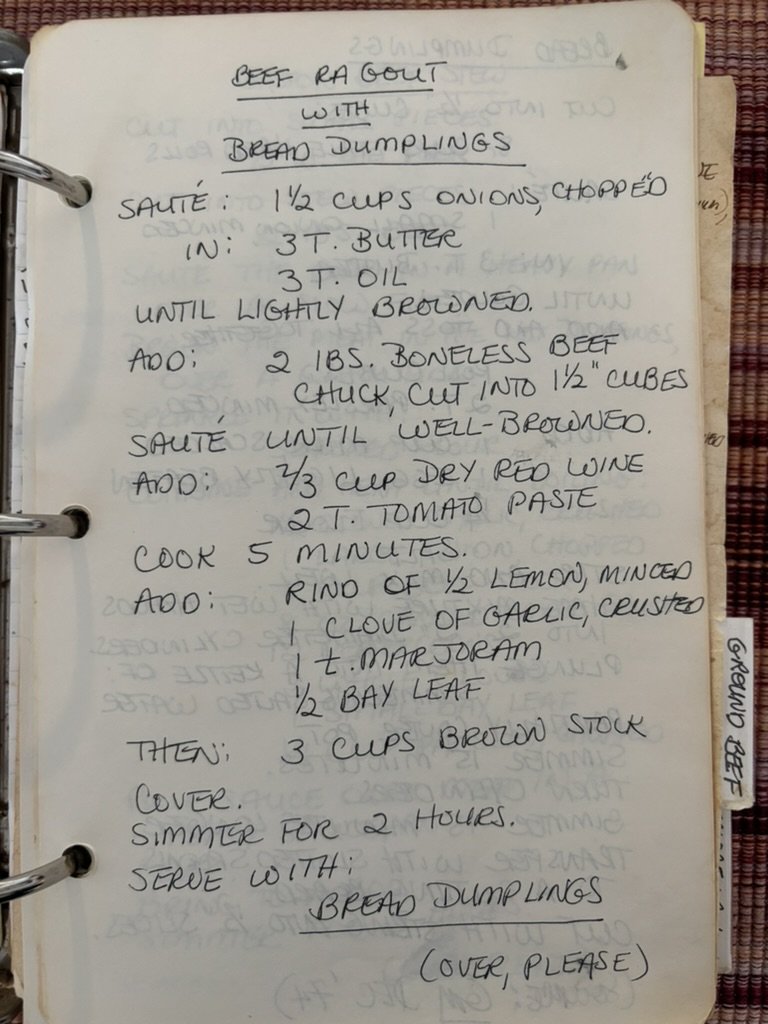 BEEF RAGOUT
WITH
BREAD DUMPLINGS
SAUTÉ: 1 1/2 CUPS ONIONS, CHOPPED
IN: 3 T. BUTTER
3 T. OIL
UNTIL LIGHTLY BROWNED.
ADD: 2 lBS. BONELESS BEEF
CHUCK, CUT INTO 1 1/2" CUBES
SAUTÉ UNTIL WELL-BROWNED.
ADD: 2/3 CUP DRY RED WINE
2 T. TOMATO PASTE
COOK 5 MINUTES.
ADD: RIND OF 1/2 LEMON, MINCED
1 CLOVE OF GARLIC, CRUSHED
1 t. MARJORAM
1/2 BAY LEAF
THEN: 3 CUPS BROWN STOCK
COVER.
SIMMER FOR 2 HOURS.
SERVE WITH:
BREAD DUMPLINGS
(OVER, PLEASE)
GROUND BEEF